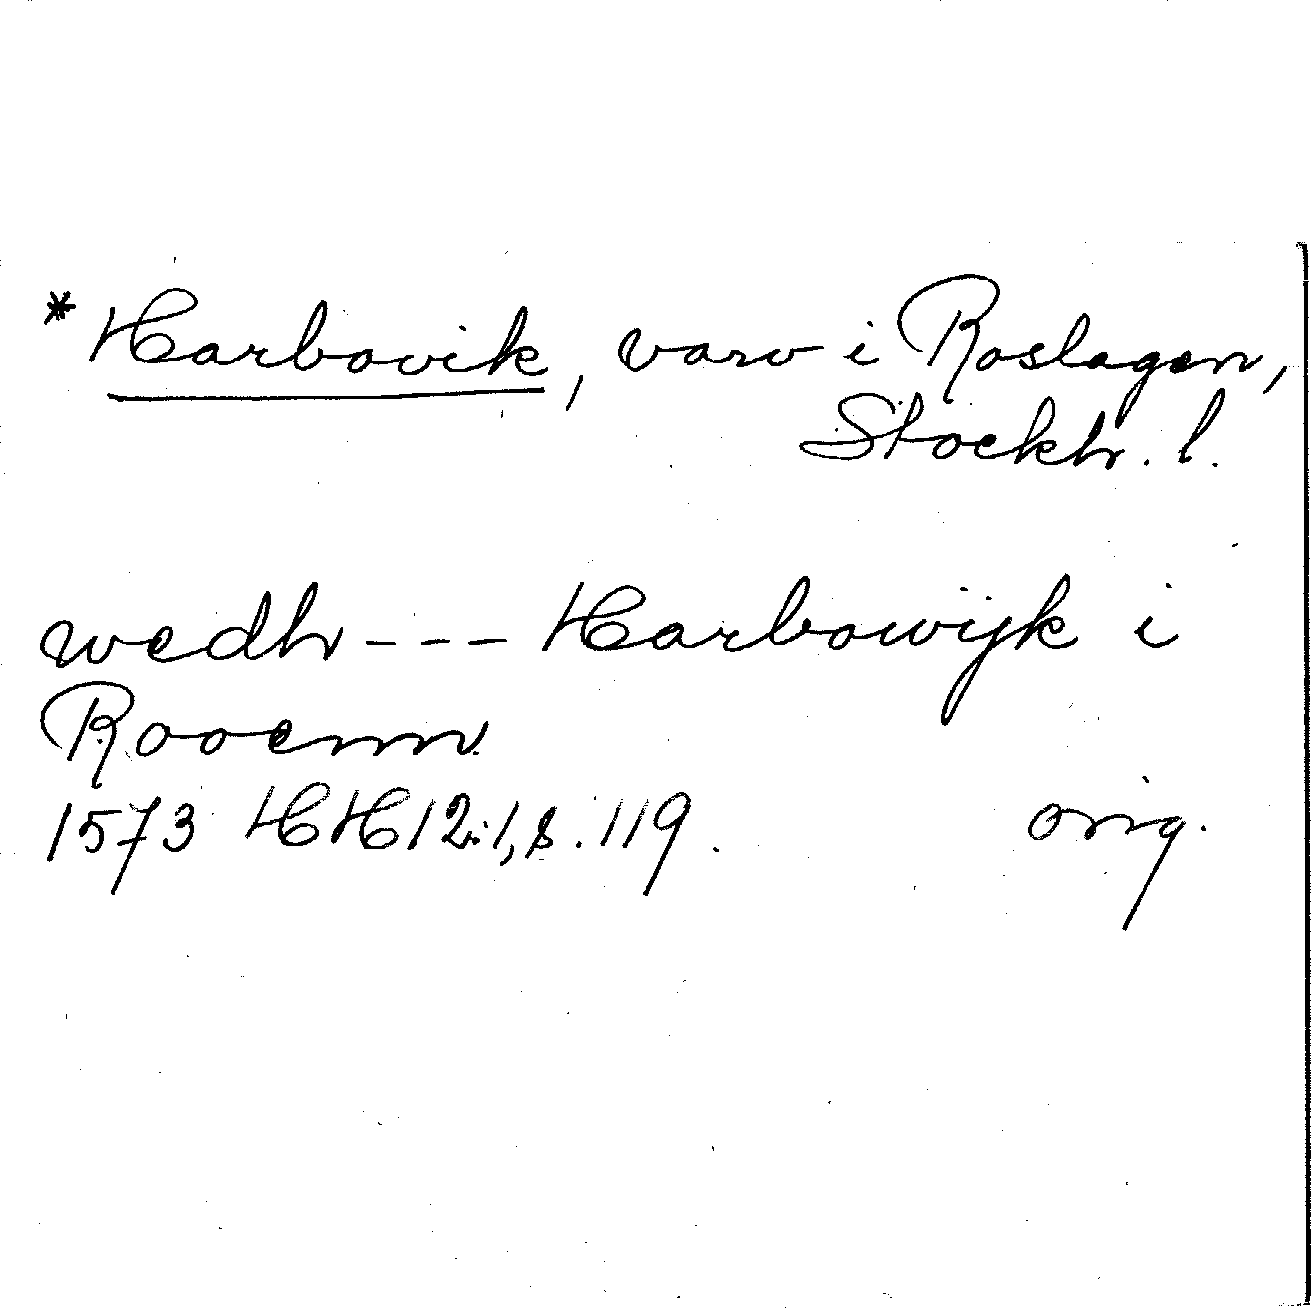 *Harbovik, varv i Roslagen,
Stockh. l.
wedh --- Harbowijk i
Rooenn
1573 HH12:1, s. 119. orig.